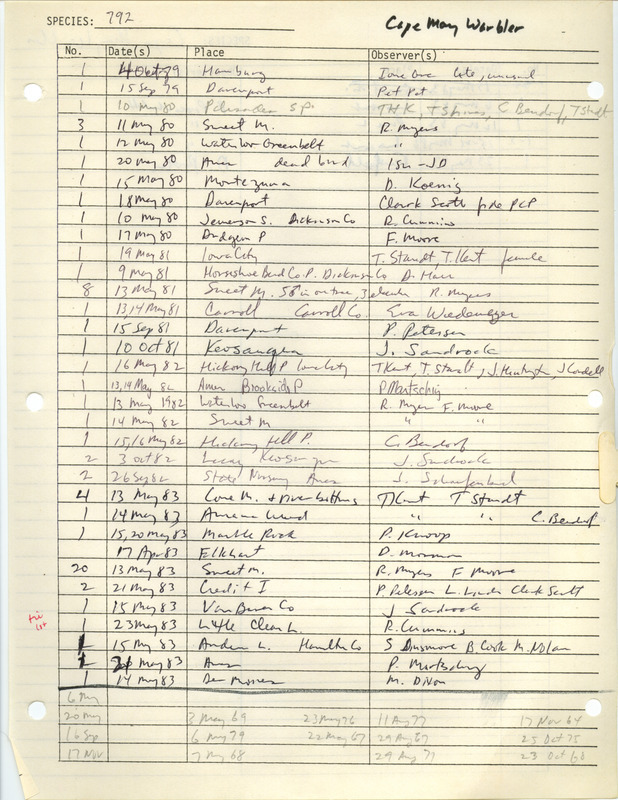 SPECIES: 792 Cape May Warbler
No. Date(s) Place Observer(s)
1 4 Oct 79 Hamburg late, unusual
1 15 Sep 79 Davenport Pet Pet
1 10 May 80 Palisades S.P. THK, T Shires, C Bendorf, T Staudt
3 11 May 80 Sweet M. R. Myers
1 12 May 80 Waterloo Greenbelt "
1 20 May 80 Ames dead bird ISU-JD
1 15 May 80 Montezuma D. Koenig
1 18 May 80 Davenport Clark Scott fide PCP
1 10 May 80 Jemerson S. Dickinson Co R. Cummins
1 17 May 80 Dudgeon P F. Moore
1 19 May 81 Iowa City T. Staudt, T. Kent female
1 9 May 81 Horseshoe Bend Co. P. Dickinson Co D. Harr
8 13 May 81 Sweet M. 5 in one tree, 3 elsewhere R. Myers
1 13,14 May 81 Carroll Carroll Co. Eva Wiedemeyer
1 15 Sep 81 Davenport P. Petersen
1 10 Oct 81 Keosauqua J. Sandrock
1 16 May 82 Hickory Hill P Iowa City T Kent, T. Staudt, J. Huntington, J Cordell
1 13,14 May 82 Ames Brookside P P Martsching
1 13 May 1982 Waterloo Greenbelt R. Myers F. Moore
1 14 May 82 Sweet M " "
1 15,16 May 82 Hickory Hill P. C. Bendorf
2 3 Oct 82 Lacey Keosauqua J. Sandrock
2 26 Sep 82 State Nursery Ames J. Schaufenbuel
4 13 May 83 Cone M. + river bottoms T Kent T Staudt
1 14 May 83 Amana Wood " " C. Bendorf
1 15,20 May 83 Marble Rock P. Knoop
17 Apr 83 Elkhart D. Mooman
20 13 May 83 Sweet M. R. Myers F Moore
2 21 May 83 Credit I P Petersen L. Linda Clark Scott
1 15 May 83 Van Buren Co J Sandrock
1 23 May 83 Little Clear L. R. Cummins
1 15 May 83 Anderson L. Hamilton Co S Dinsmore B Cook M. Nolan
2 21 May 83 Ames P. Martsching
1 14 May 83 Des Moines M. Dixon
6 May
20 May 3 May 69 23 May 76 11 Aug 77 17 Nov 64
16 Sep 6 May 79 22 May 67 29 Aug 67 25 Oct 75
17 Nov 7 May 68 29 Aug 71 23 Oct 60